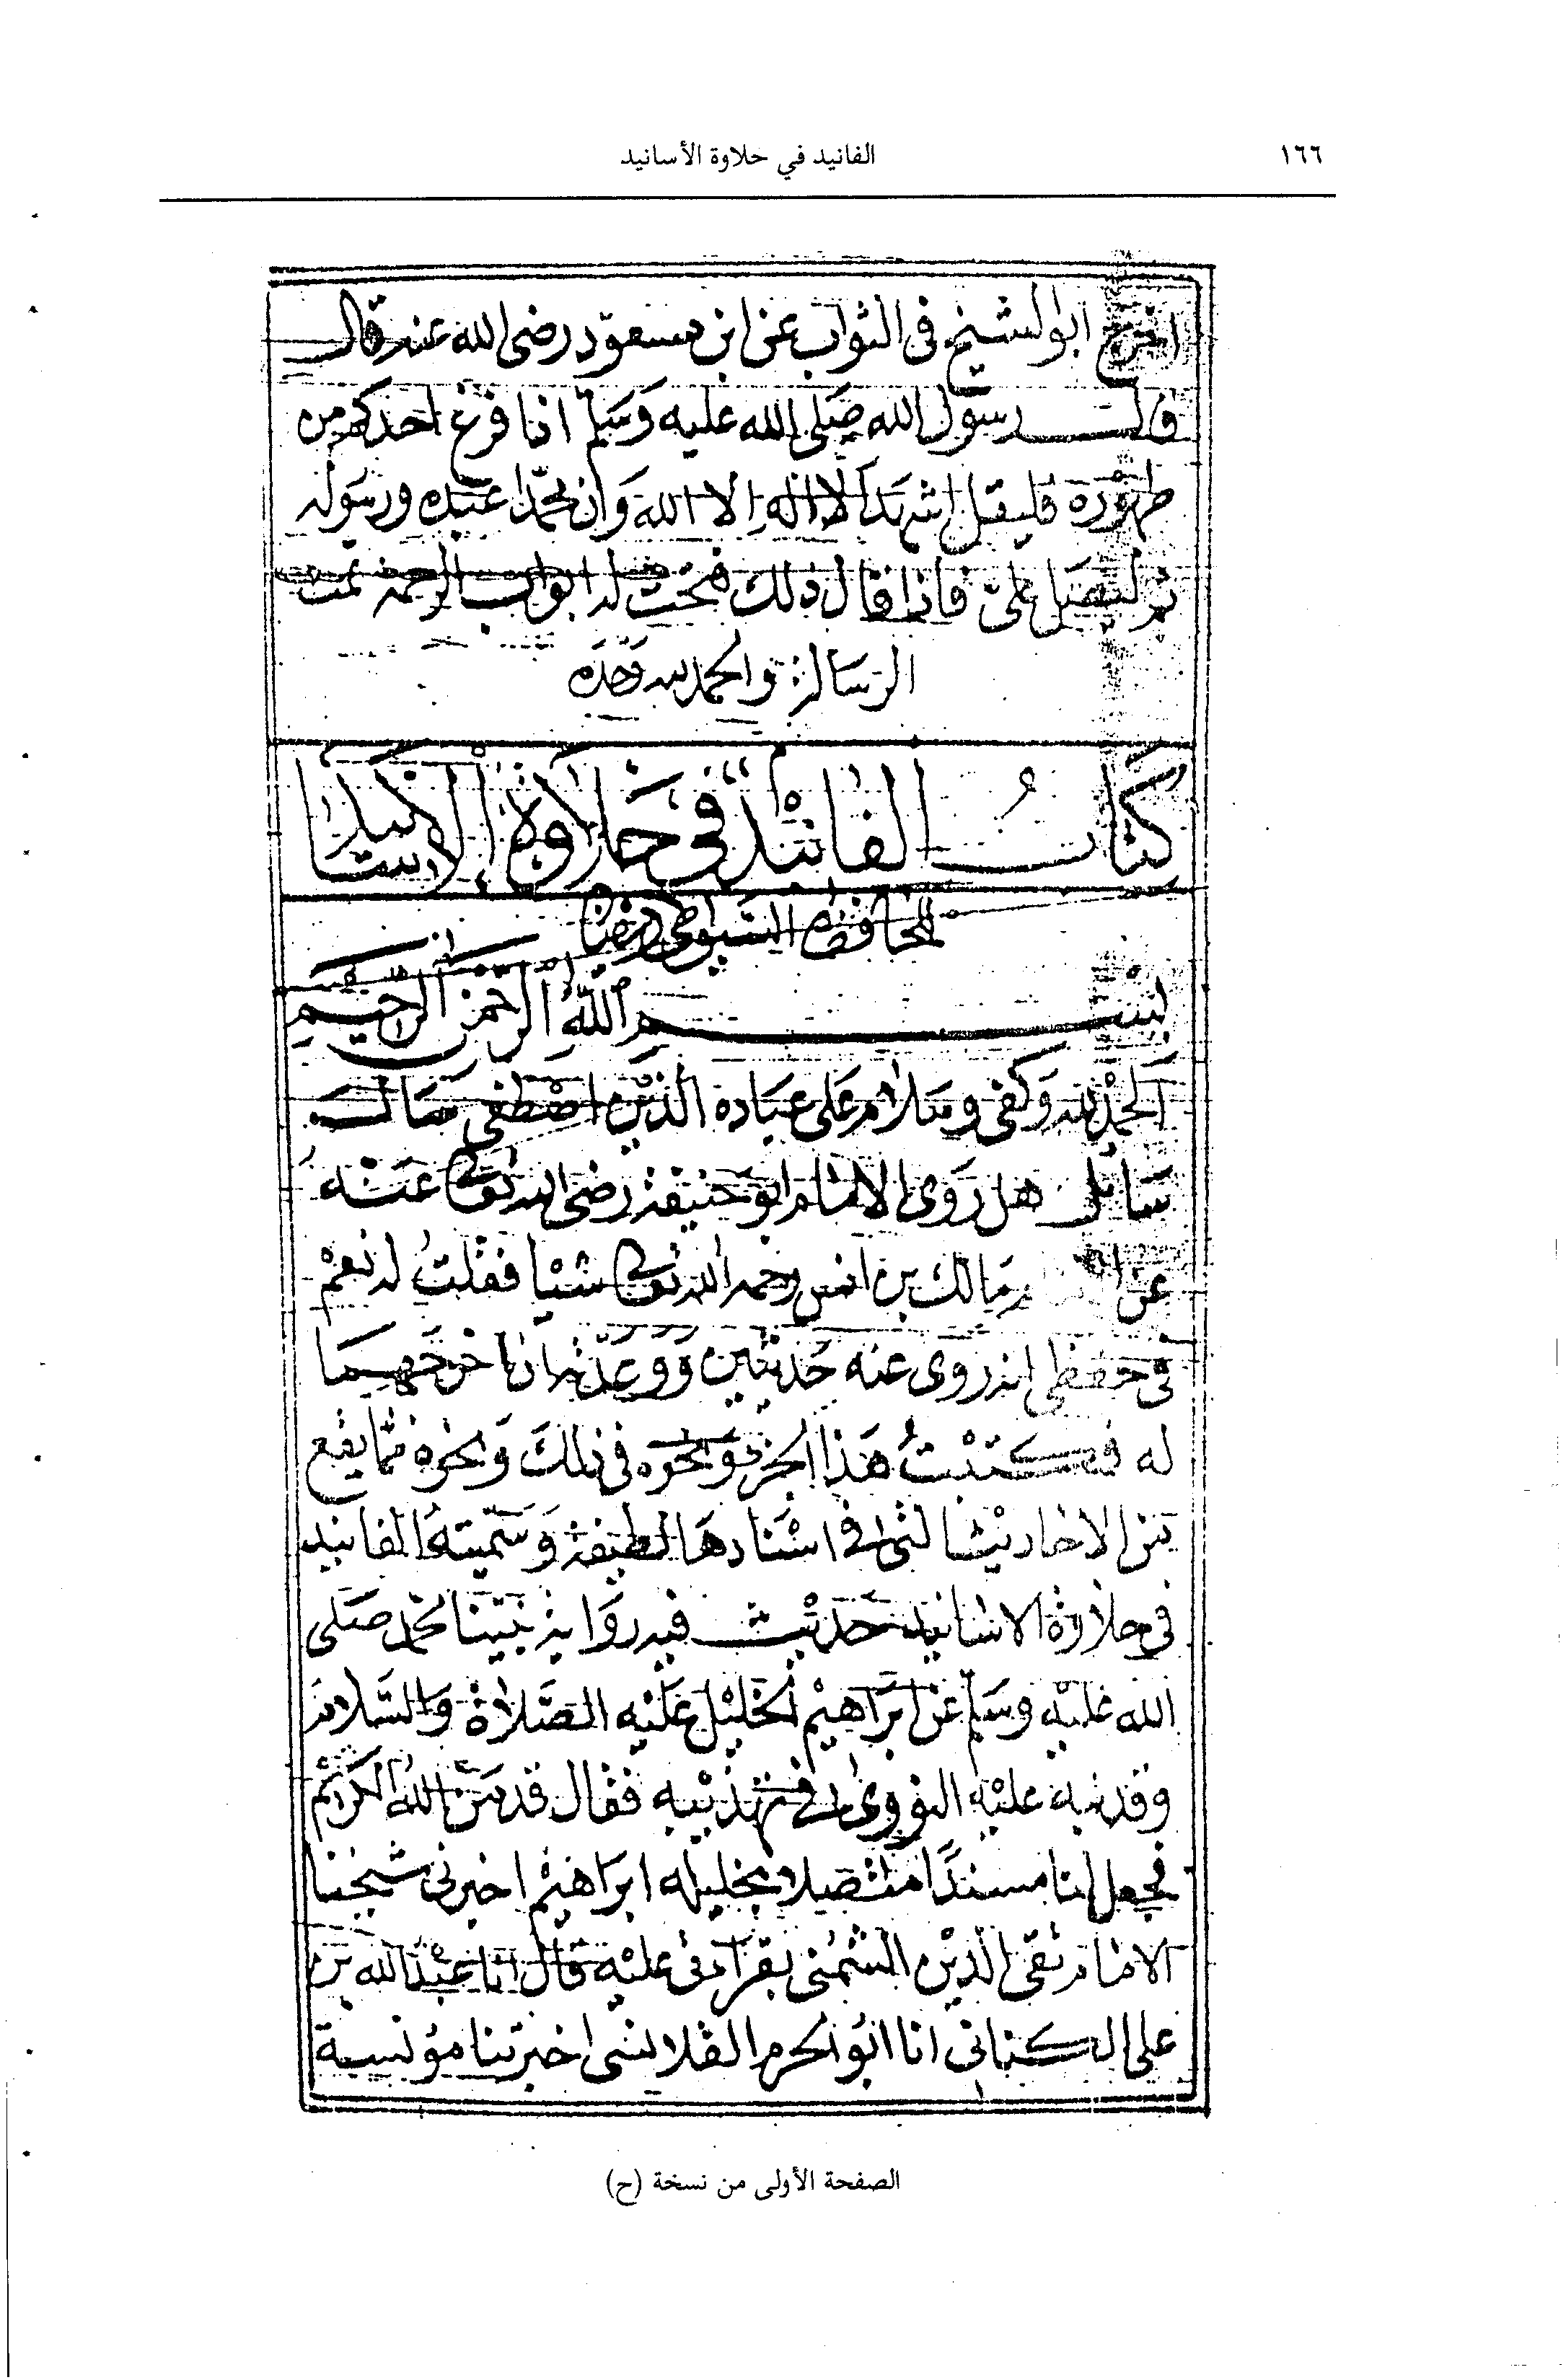 ١٦٦
الفانيد في حلاوة الأسانيد
اخرج ابو الشيخ فى الثواب عن ابن مسعود رضى الله عنه قال
قال رسول الله صلى الله عليه وسلم اذا فرغ احدكم من
طهوره فليقل اشهد ان لا اله الا الله وان محمدا عبده ورسوله
ثم ليصل على فاذا قال ذلك فتحت له ابواب الرحمة تمت
الرسالة والحمد لله وحده
كتاب الفانيد في حلاوة الاسانيد
للحافظ السيوطى
بسم الله الرحمن الرحيم
الحمد لله وكفى وسلام على عباده الذين اصطفى سال
سائل هل روى الامام ابو حنيفة رضى الله تعالى عنه
عن مالك بن انس رحمه الله تعالى شيا فقلت له نعم
فى حفظى انه روى عنه حديثين ووعدته ان اخرجهما
له فكتبت هذا الجزء ونحوه فى ذلك ونحوه مما يقع
من الاحاديث التى في اسنادها لطيفة وسميته الفانيد
فى حلاوة الاسانيد حديث فيه رواية نبينا محمد صلى
الله عليه وسلم عن ابراهيم الخليل عليه الصلاة والسلام
وقد نبه عليه النووى في تهذيبه فقال قد من الله الكريم
فجعل لنا مسندا متصلا بخليله ابراهيم اخبرنى شيخنا
الامام تقى الدين الشمنى بقراءتى عليه قال انا عبد الله بن
على الكنانى انا ابو الحرم القلانسى اخبرتنا مؤنسة
الصفحة الأولى من نسخة (ح)